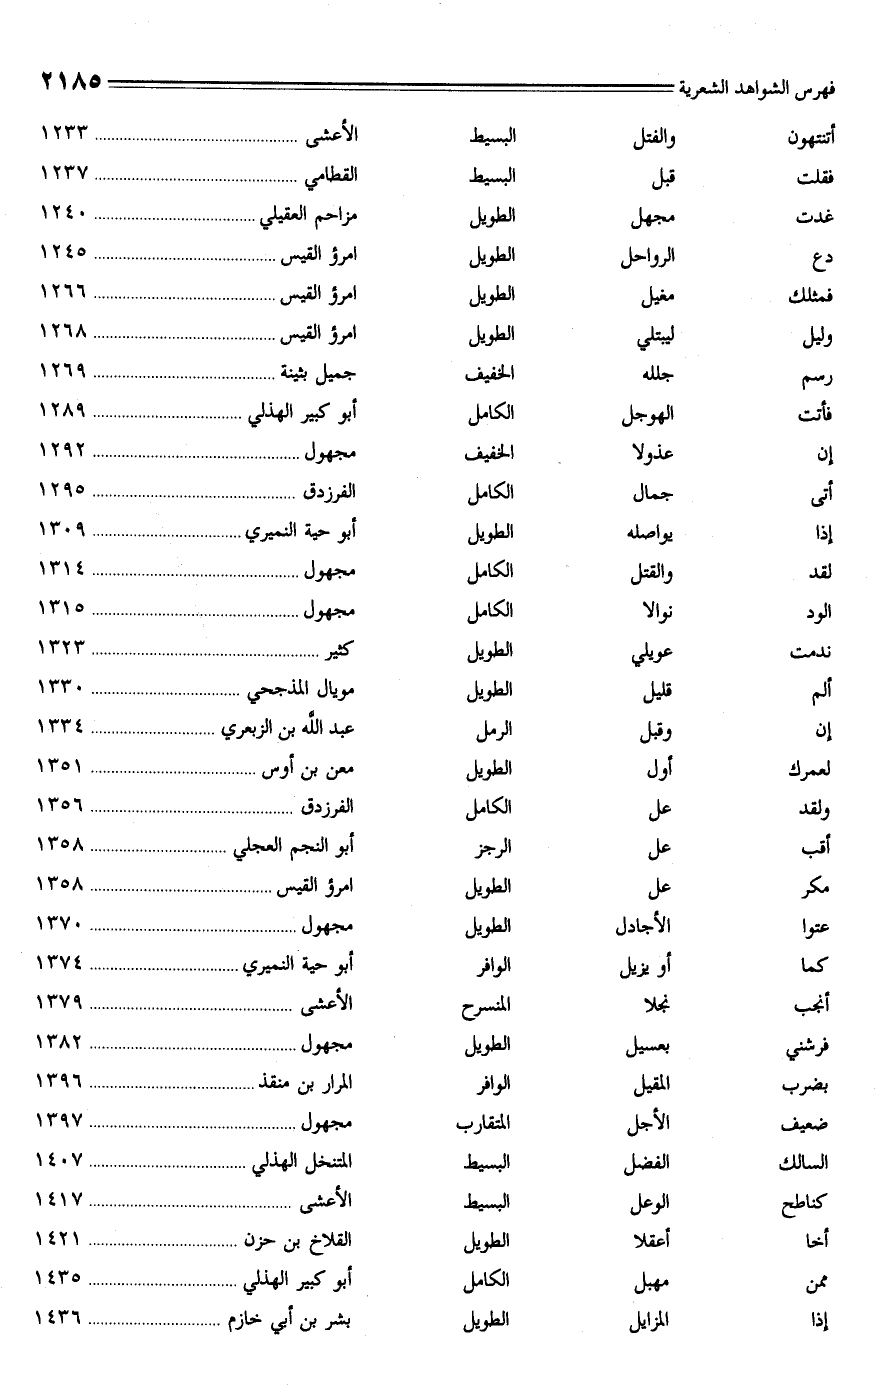 فهرس الشواهد الشعرية ٢١٨٥
أتنتهون والفتل البسيط الأعشى ١٢٣٣
فقلت قبل البسيط القطامي ١٢٣٧
غدت مجهل الطويل مزاحم العقيلي ١٢٤٠
دع الرواحل الطويل امرؤ القيس ١٢٤٥
فمثلك مغيل الطويل امرؤ القيس ١٢٦٦
وليل ليبتلي الطويل امرؤ القيس ١٢٦٨
رسم جلله الخفيف جميل بثينة ١٢٦٩
فأتت الهوجل الكامل أبو كبير الهذلي ١٢٨٩
إن عذولا الخفيف مجهول ١٢٩٢
أتى جمال الكامل الفرزدق ١٢٩٥
إذا يواصله الطويل أبو حية النميري ١٣٠٩
لقد والقتل الكامل مجهول ١٣١٤
الود نوالا الكامل مجهول ١٣١٥
ندمت عويلي الطويل كثير ١٣٢٣
ألم قليل الطويل مويال المذجحي ١٣٣٠
إن وقبل الرمل عبد اللَّه بن الزبعري ١٣٣٤
لعمرك أول الطويل معن بن أوس ١٣٥١
ولقد عل الكامل الفرزدق ١٣٥٦
أقب عل الرجز أبو النجم العجلي ١٣٥٨
مكر عل الطويل امرؤ القيس ١٣٥٨
عتوا الأجادل الطويل مجهول ١٣٧٠
كما أو يزيل الوافر أبو حية النميري ١٣٧٤
أنجب نجلا المنسرح الأعشى ١٣٧٩
فرشني بعسيل الطويل مجهول ١٣٨٢
بضرب المقيل الوافر المرار بن منقذ ١٣٩٦
ضعيف الأجل المتقارب مجهول ١٣٩٧
السالك الفضل البسيط المتنخل الهذلي ١٤٠٧
كناطح الوعل البسيط الأعشى ١٤١٧
أخا أعقلا الطويل القلاخ بن حزن ١٤٢١
ممن مهبل الكامل أبو كبير الهذلي ١٤٣٥
إذا المزايل الطويل بشر بن أبي خازم ١٤٣٦